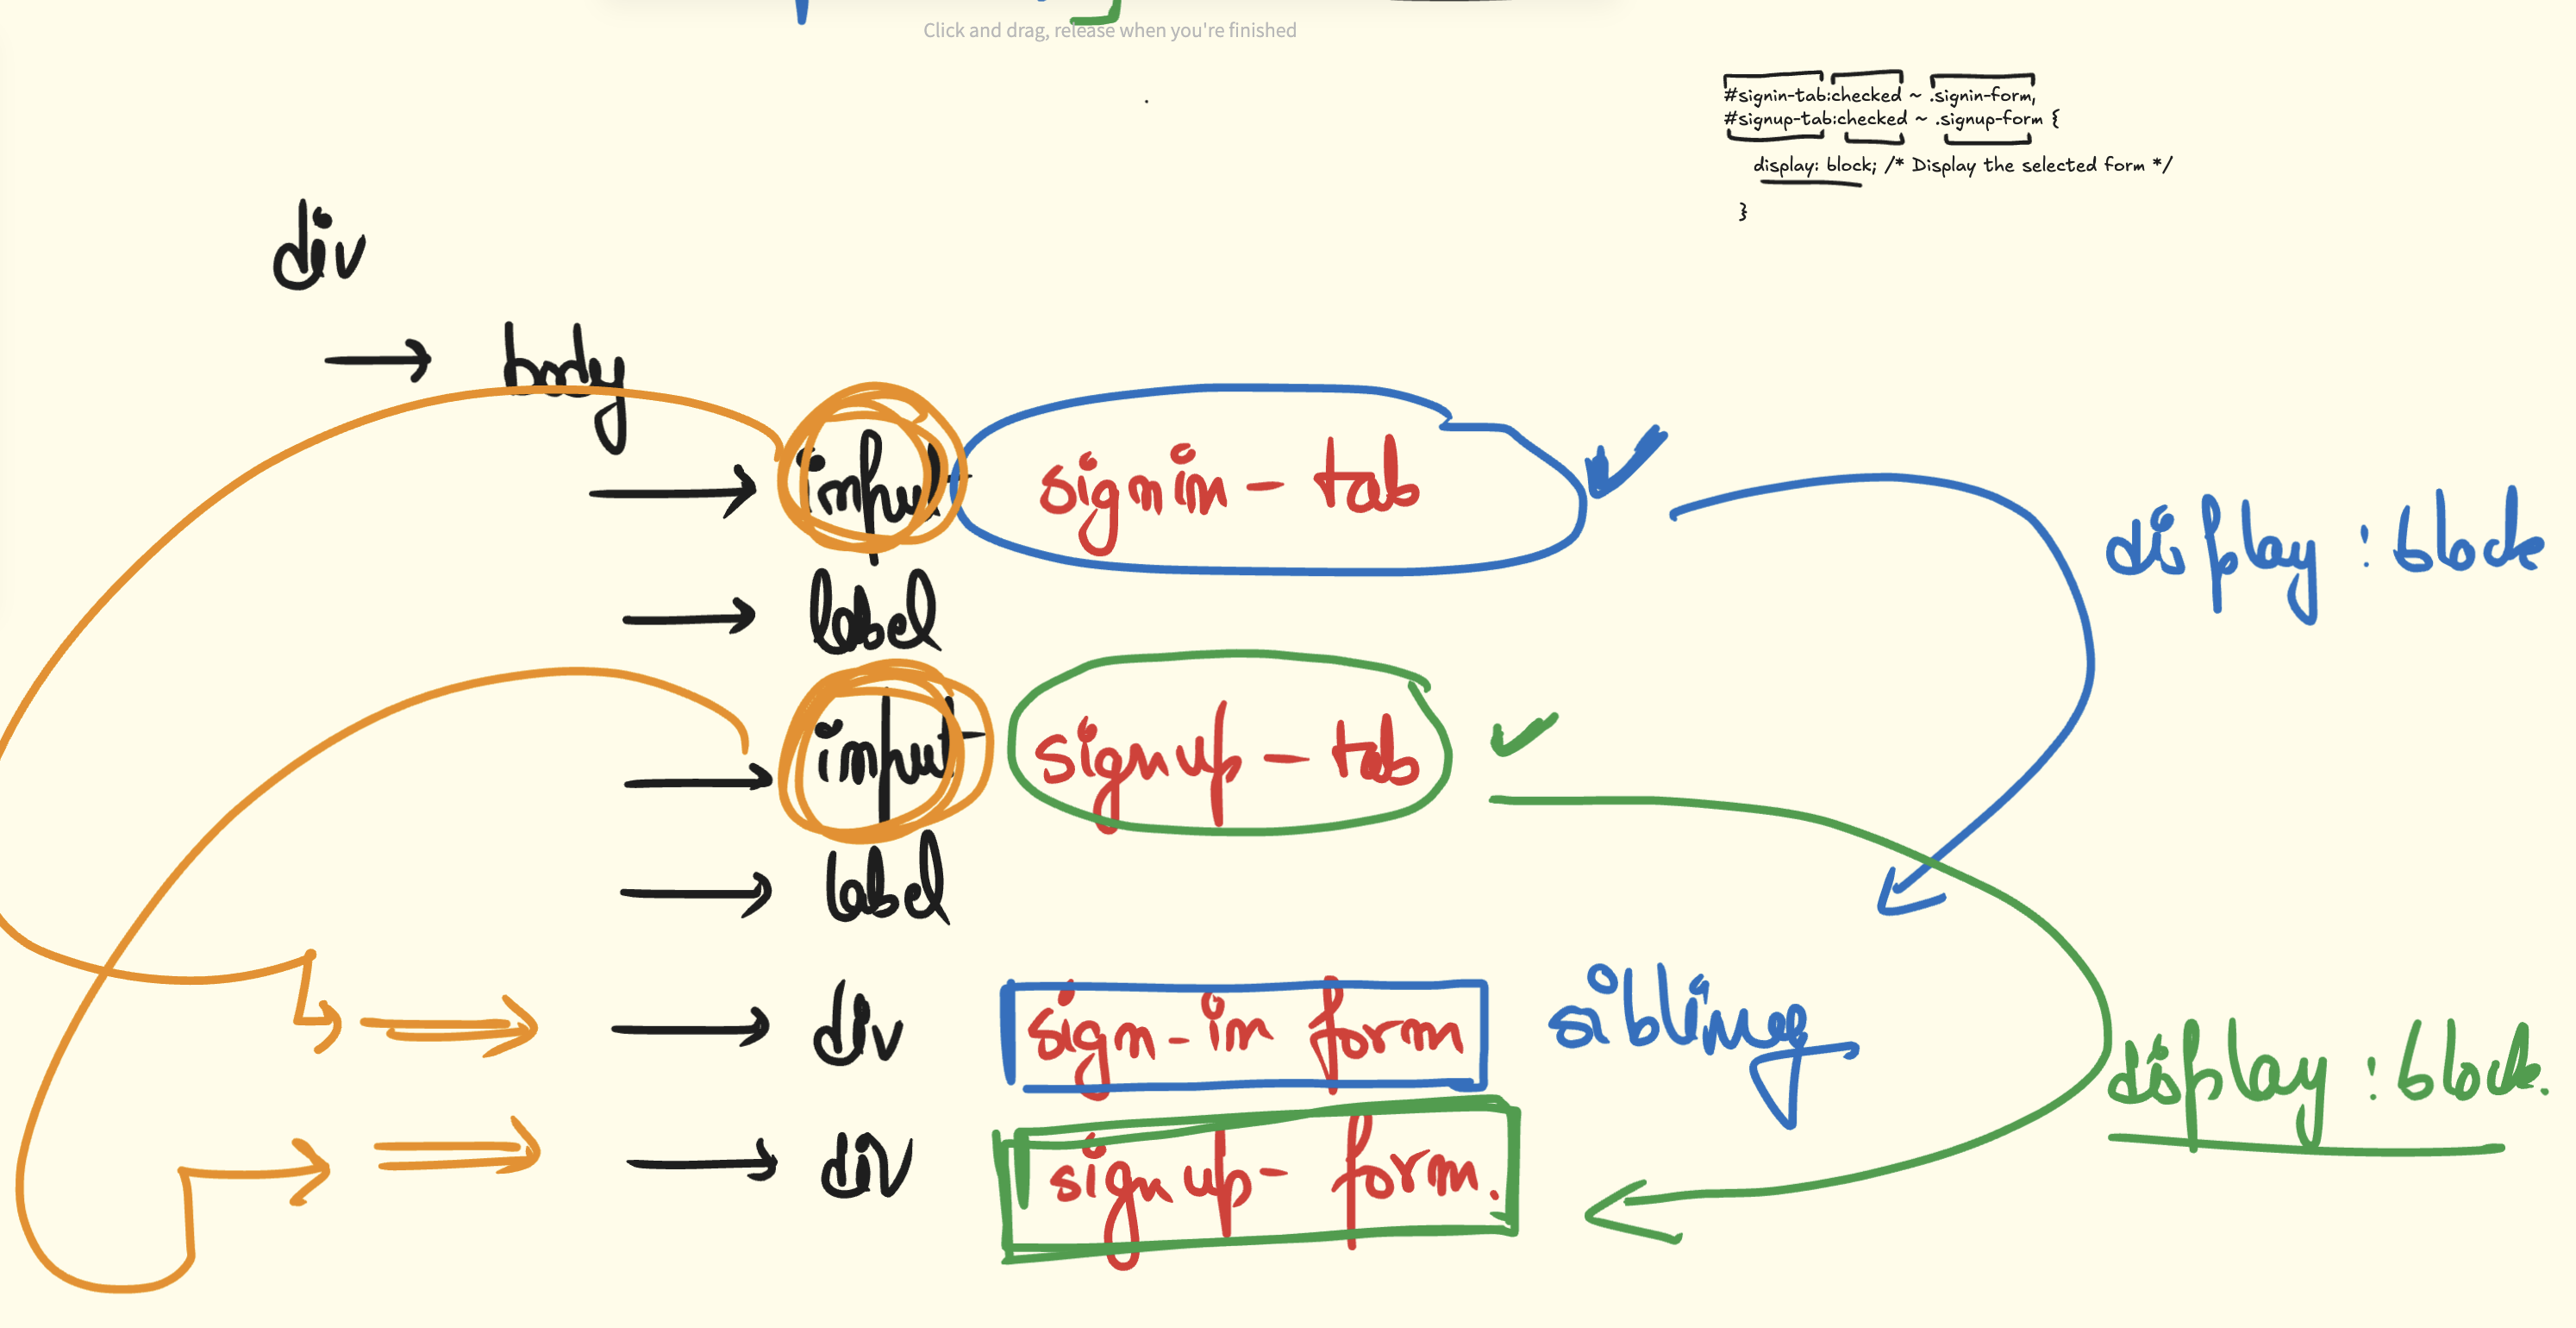 Click and drag, release when you're finished
#signin-tab:checked ~ .signin-form,
#signup-tab:checked ~ .signup-form {
display: block; /* Display the selected form */
}
div
body
input signin-tab
display: block
label
input signup-tab
label
div sign-in form siblings
display: block.
div signup-form.